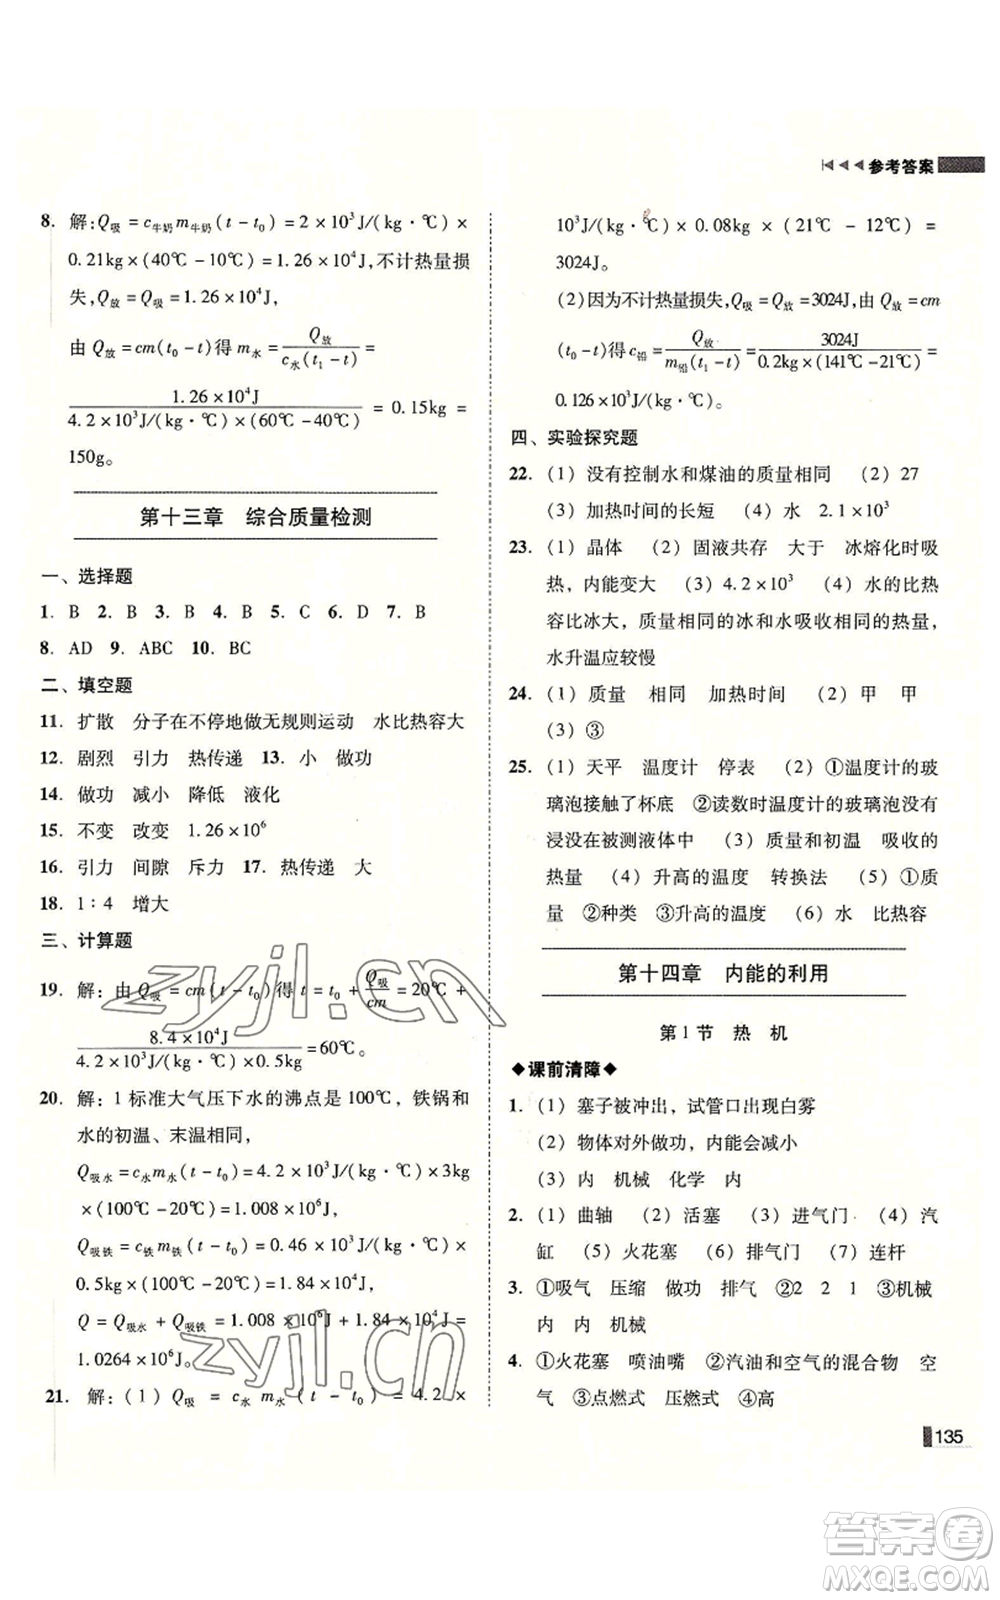 参考答案
8. 解:Q吸=c牛奶m牛奶(t-t₀)=2×10³J/(kg·℃)×
0.21kg×(40℃-10℃)=1.26×10⁴J,不计热量损
失,Q放=Q吸=1.26×10⁴J,
由 Q放=cm(t₀-t)得 m水=Q放/c水(t₁-t)=
1.26×10⁴J/4.2×10³J/(kg·℃)×(60℃-40℃)=0.15kg=
150g。
第十三章 综合质量检测
一、选择题
1. B 2. B 3. B 4. B 5. C 6. D 7. B
8. AD 9. ABC 10. BC
二、填空题
11. 扩散 分子在不停地做无规则运动 水比热容大
12. 剧烈 引力 热传递 13. 小 做功
14. 做功 减小 降低 液化
15. 不变 改变 1.26×10⁶
16. 引力 间隙 斥力 17. 热传递 大
18. 1∶4 增大
三、计算题
19. 解:由 Q吸=cm(t-t₀)得 t=t₀+Q吸/cm=20℃+
8.4×10⁴J/4.2×10³J/(kg·℃)×0.5kg=60℃。
20. 解:1标准大气压下水的沸点是100℃,铁锅和
水的初温、末温相同,
Q吸水=c水m水(t-t₀)=4.2×10³J/(kg·℃)×3kg
×(100℃-20℃)=1.008×10⁶J,
Q吸铁=c铁m铁(t-t₀)=0.46×10³J/(kg·℃)×
0.5kg×(100℃-20℃)=1.84×10⁴J,
Q=Q吸水+Q吸铁=1.008×10⁶J+1.84×10⁴J=
1.0264×10⁶J。
21. 解:(1)Q吸=c水m水(t-t₀)=4.2×
10³J/(kg·℃)×0.08kg×(21℃-12℃)=
3024J。
(2)因为不计热量损失,Q吸=Q放=3024J,由 Q放=cm
(t₀-t)得c铅=Q放/m铅(t₁-t)=3024J/0.2kg×(141℃-21℃)=
0.126×10³J/(kg·℃)。
四、实验探究题
22. (1)没有控制水和煤油的质量相同 (2)27
(3)加热时间的长短 (4)水 2.1×10³
23. (1)晶体 (2)固液共存 大于 冰熔化时吸
热,内能变大 (3)4.2×10³ (4)水的比热
容比冰大,质量相同的冰和水吸收相同的热量,
水升温应较慢
24. (1)质量 相同 加热时间 (2)甲 甲
(3)③
25. (1)天平 温度计 停表 (2)①温度计的玻
璃泡接触了杯底 ②读数时温度计的玻璃泡没有
浸没在被测液体中 (3)质量和初温 吸收的
热量 (4)升高的温度 转换法 (5)①质
量 ②种类 ③升高的温度 (6)水 比热容
第十四章 内能的利用
第1节 热 机
◆课前清障◆
1. (1)塞子被冲出,试管口出现白雾
(2)物体对外做功,内能会减小
(3)内 机械 化学 内
2. (1)曲轴 (2)活塞 (3)进气门 (4)汽
缸 (5)火花塞 (6)排气门 (7)连杆
3. ①吸气 压缩 做功 排气 ②2 2 1 ③机械
内 内 机械
4. ①火花塞 喷油嘴 ②汽油和空气的混合物 空
气 ③点燃式 压燃式 ④高
135
zyjl.cn
zyjl.cn
答案圈
MXQE.COM